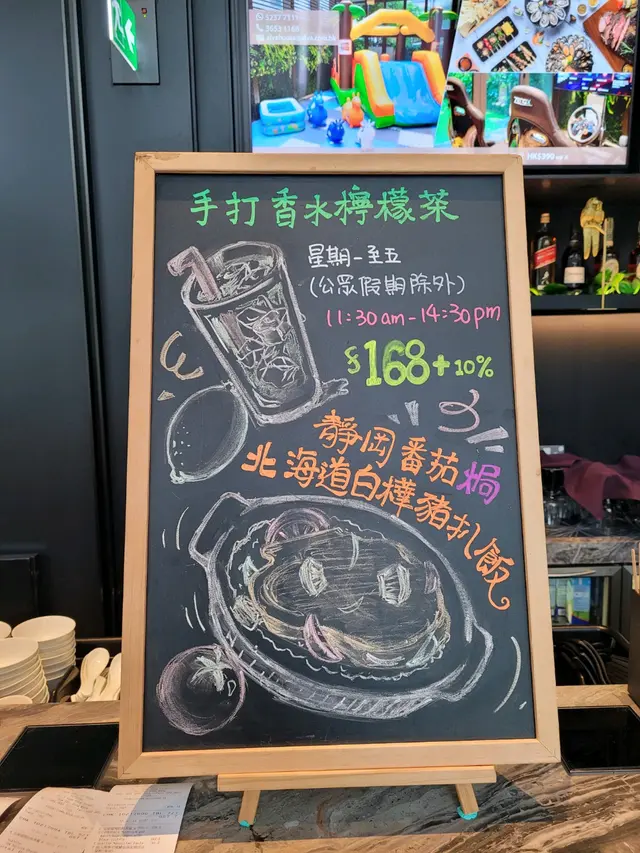 手打香水檸檬茶
星期一至五
(公眾假期除外)
11:30am-14:30pm
$168+10%
靜岡番茄焗
北海道白樺豬扒飯
HK$990